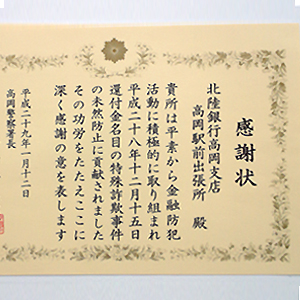 感謝状
北陸銀行高岡支店
高岡駅前出張所 殿
貴所は平素から金融防犯
活動に積極的に取り組まれ
平成二十八年十二月十五日
還付金名目の特殊詐欺事件
の未然防止に貢献されました
その功労をたたえここに
深く感謝の意を表します
平成二十九年一月十二日
高岡警察署長